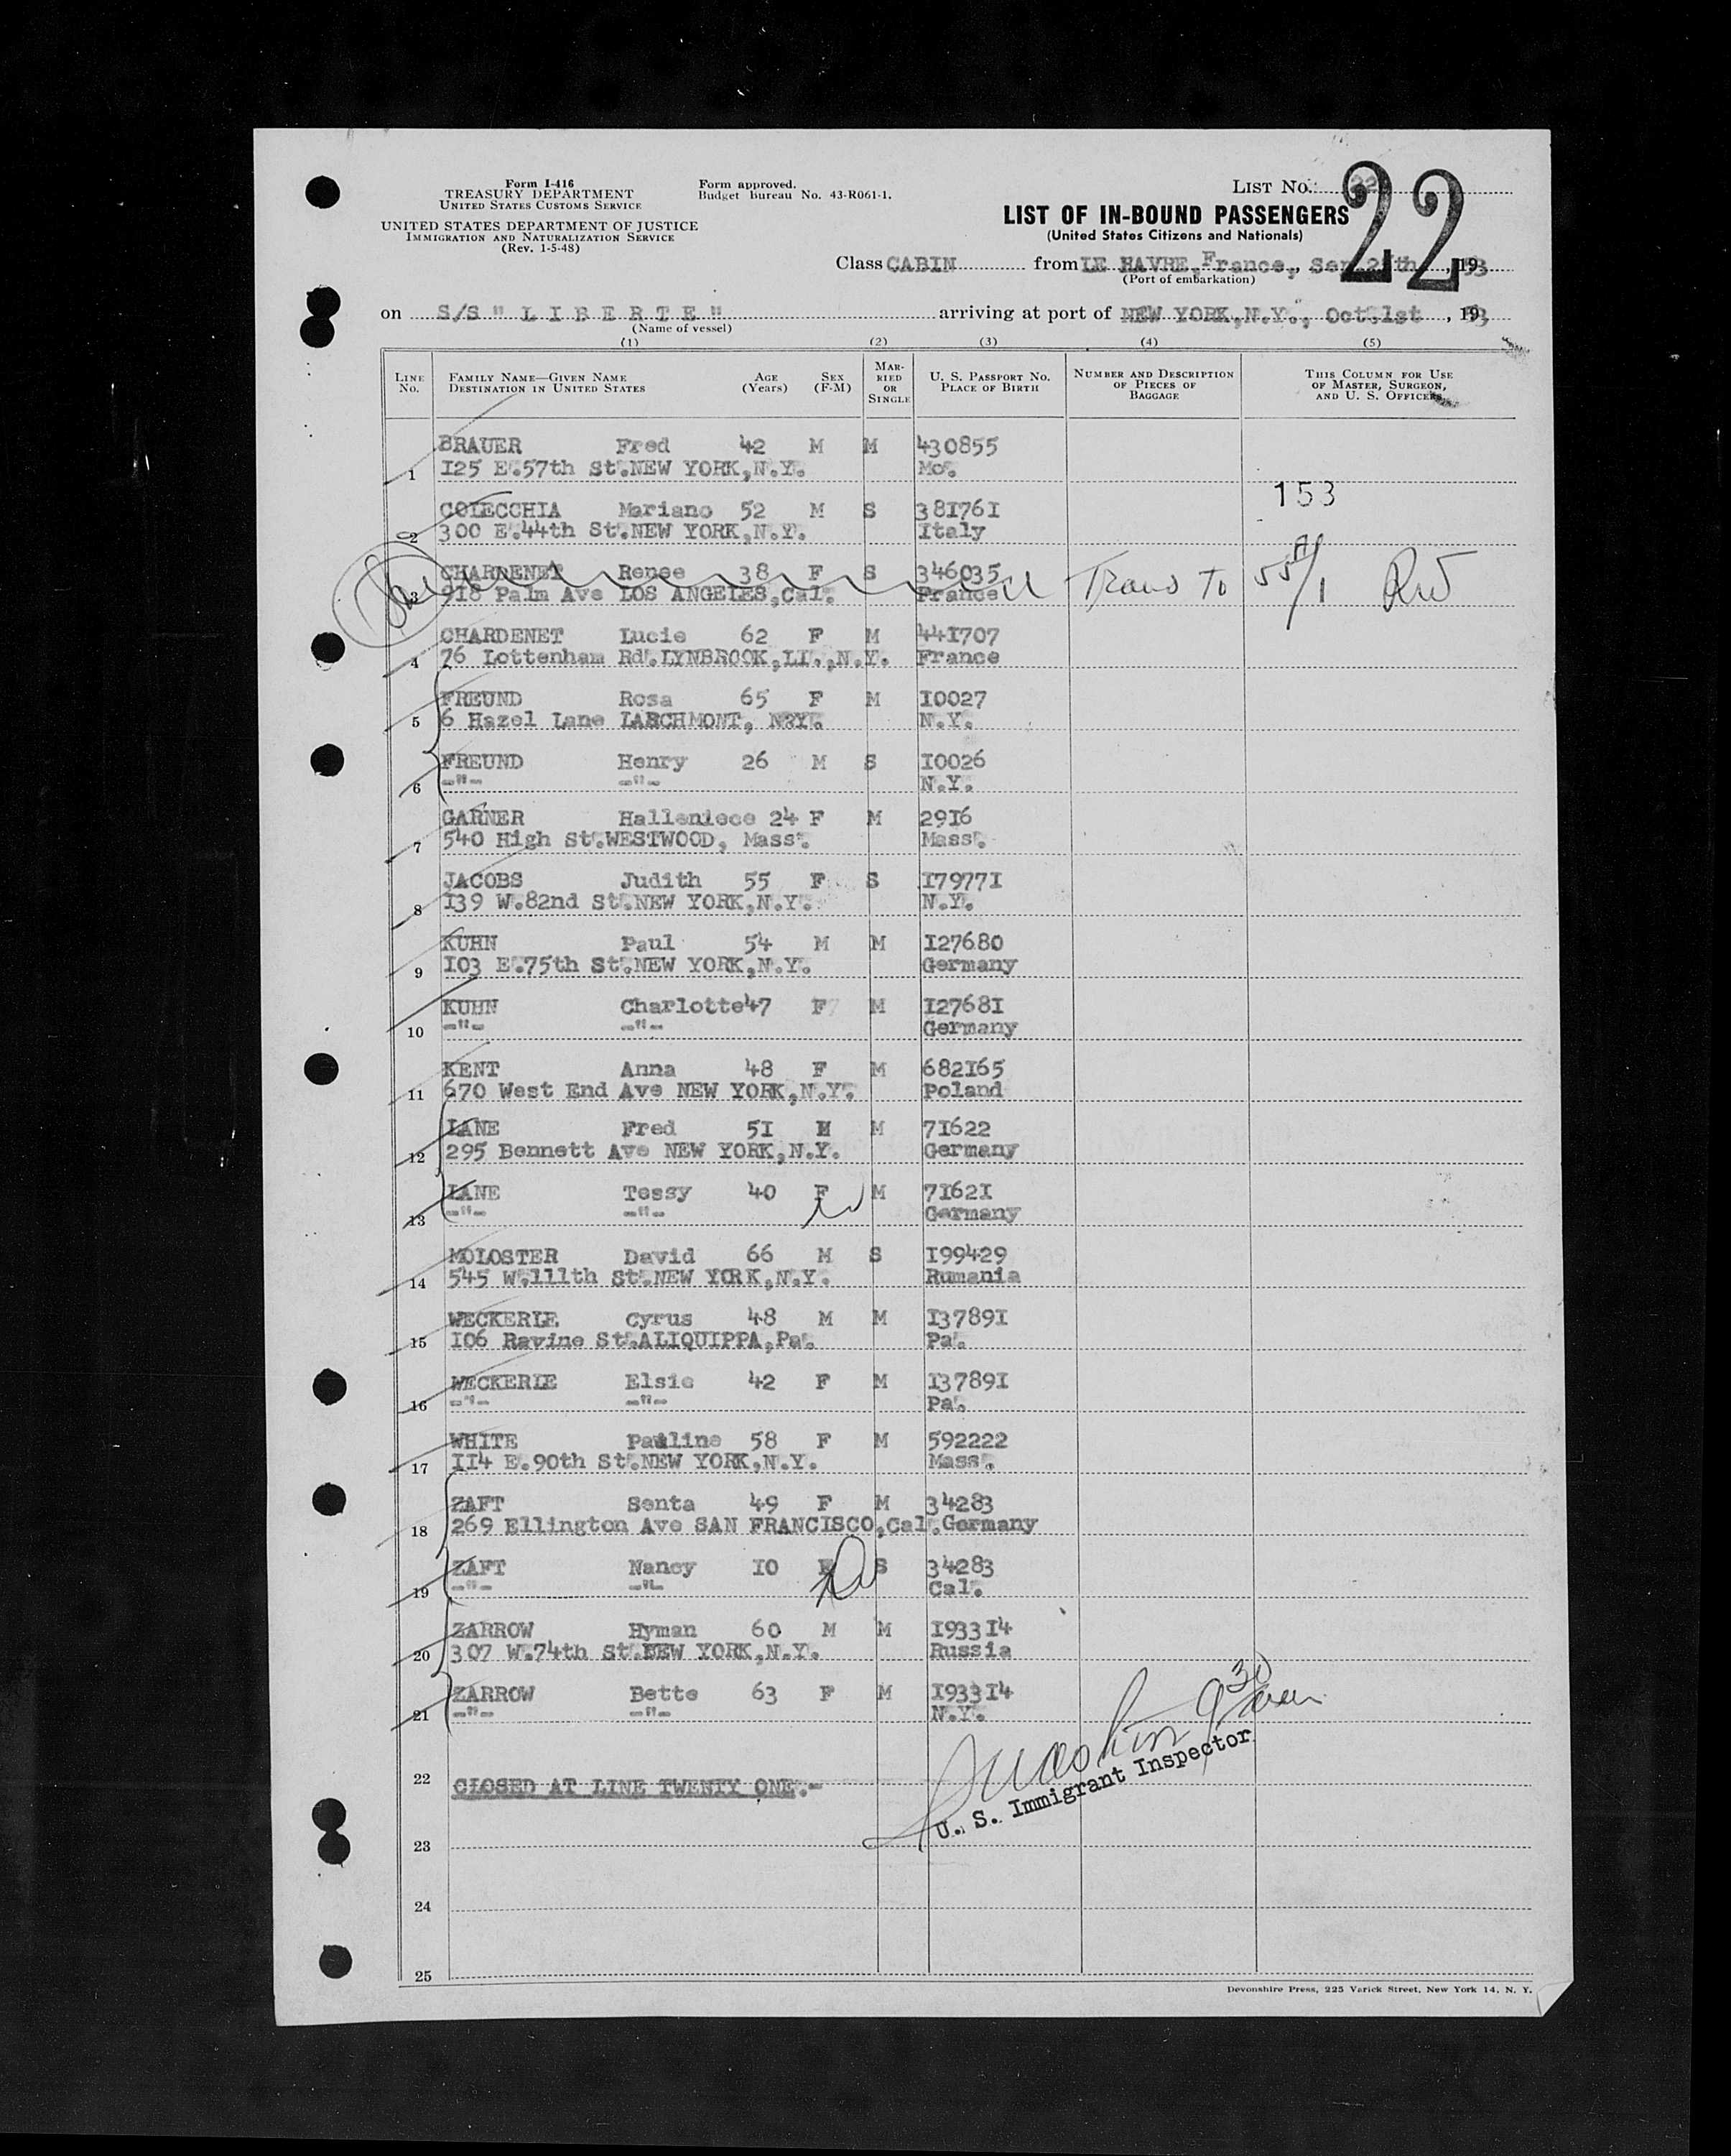 Form I-416
TREASURY DEPARTMENT
UNITED STATES CUSTOMS SERVICE
UNITED STATES DEPARTMENT OF JUSTICE
IMMIGRATION AND NATURALIZATION SERVICE
(Rev. 1-5-48)
Form approved.
Budget Bureau No. 43-R061-1.
LIST NO. 22
22
LIST OF IN-BOUND PASSENGERS
(United States Citizens and Nationals)
Class CABIN from LE HAVRE, France, Sep , 1953
(Port of embarkation)
on S/S " L I B E R T E " arriving at port of NEW YORK,N.Y., Oct.1st , 1953
(Name of vessel)
(1) (2) (3) (4) (5)
LINE No. FAMILY NAME—GIVEN NAME DESTINATION IN UNITED STATES AGE (Years) SEX (F-M) MARRIED OR SINGLE U. S. PASSPORT NO. PLACE OF BIRTH NUMBER AND DESCRIPTION OF PIECES OF BAGGAGE THIS COLUMN FOR USE OF MASTER, SURGEON, AND U. S. OFFICERS
BRAUER Fred 42 M M 430855
1 125 E.57th St.NEW YORK,N.Y. Mo.
153
COLECCHIA Mariano 52 M S 381761
2 300 E.44th St.NEW YORK,N.Y. Italy
CHARDENET Renee 38 F S 346035 Trans to 55A/1 RW
3 918 Palm Ave LOS ANGELES,Cal. France
CHARDENET Lucie 62 F M 441707
4 76 Lottenham Rd.LYNBROOK,LI.,N.Y. France
FREUND Rosa 65 F M 10027
5 6 Hazel Lane LARCHMONT, N.Y. N.Y.
FREUND Henry 26 M S 10026
6 -"- -"- N.Y.
GARNER Halleniece 24 F M 2916
7 540 High St.WESTWOOD, Mass. Mass.
JACOBS Judith 55 F S 179771
8 139 W.82nd St.NEW YORK,N.Y. N.Y.
KUHN Paul 54 M M 127680
9 103 E.75th St.NEW YORK,N.Y. Germany
KUHN Charlotte 47 F M 127681
10 -"- -"- Germany
KENT Anna 48 F M 682165
11 670 West End Ave NEW YORK,N.Y. Poland
LANE Fred 51 M M 71622
12 295 Bennett Ave NEW YORK,N.Y. Germany
LANE Tessy 40 F M 71621
13 -"- -"- Germany
MOLOSTER David 66 M S 199429
14 545 W.111th St.NEW YORK,N.Y. Rumania
WECKERLE Cyrus 48 M M 137891
15 106 Ravine St.ALIQUIPPA,Pa. Pa.
WECKERLE Elsie 42 F M 137891
16 -"- -"- Pa.
WHITE Pauline 58 F M 592222
17 114 E.90th St.NEW YORK,N.Y. Mass.
ZAFT Senta 49 F M 34283
18 269 Ellington Ave SAN FRANCISCO,Cal.Germany
ZAFT Nancy 10 F S 34283
19 -"- -"- Cal.
ZARROW Hyman 60 M M 193314
20 307 W.74th St.NEW YORK,N.Y. Russia
ZARROW Bette 63 F M 193314
21 -"- -"- N.Y.
U. S. Immigrant Inspector
22 CLOSED AT LINE TWENTY ONE.-
23
24
25
Devonshire Press, 225 Varick Street, New York 14, N. Y.